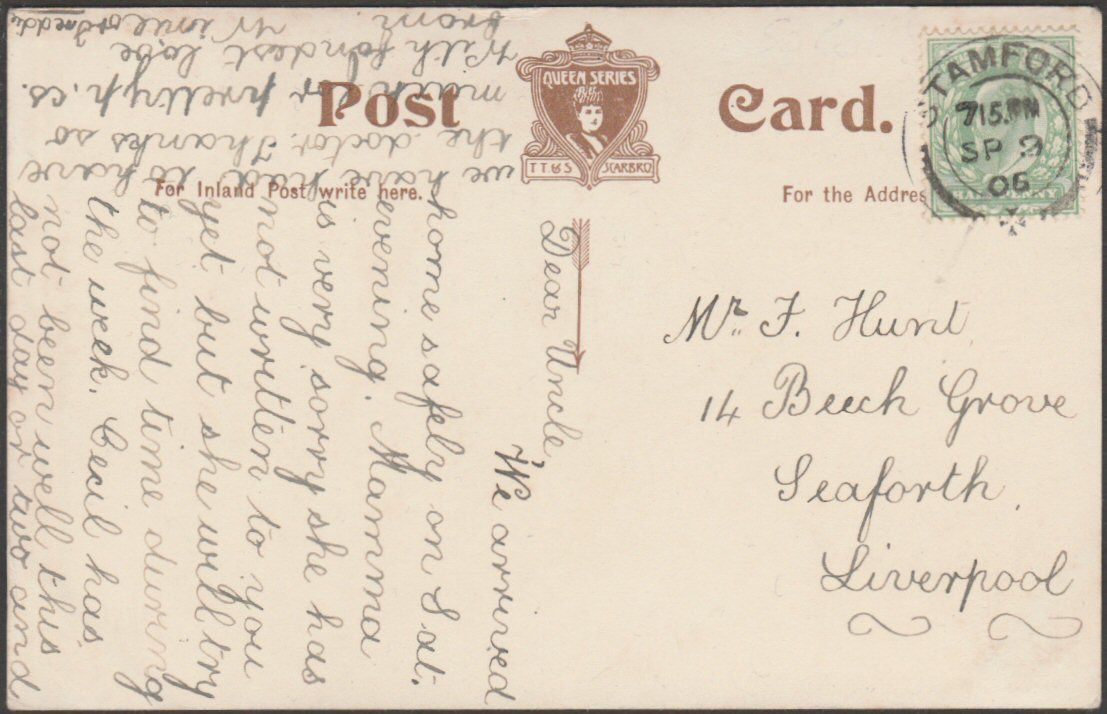 Post Card.
QUEEN SERIES
T.T.&S SCARBRO
For Inland Post write here.
For the Addres
STAMFORD
7 15 PM
SP 3
06
Mr. F. Hunt,
14 Beech Grove
Seaforth,
Liverpool
Dear Uncle,
We arrived
home safely on Sat.
evening. Mamma
is very sorry she has
not written to you
yet but she will try
to find time during
the week. Cecil has
not been well this
last day or two and
we have had to have
the doctor. Thanks so
much for pretty p.cs.
With fondest love
from